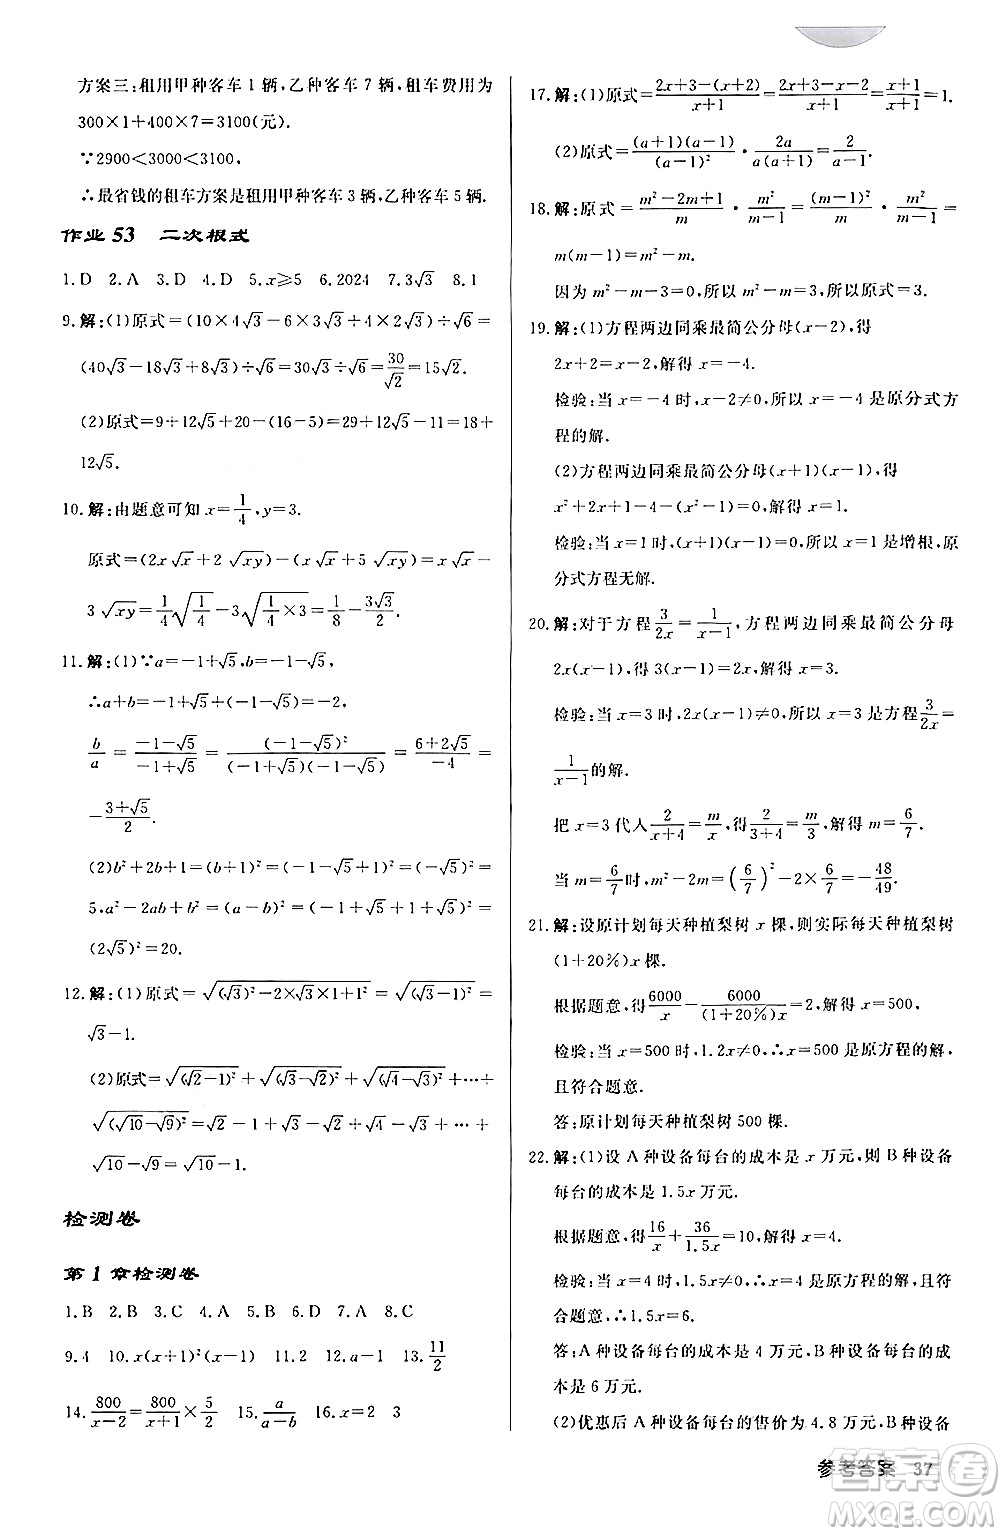 方案三:租用甲种客车 1 辆,乙种客车 7 辆,租车费用为
300×1+400×7=3100(元).
∵2900<3000<3100,
∴最省钱的租车方案是租用甲种客车 3 辆,乙种客车 5 辆.
作业 53 二次根式
1.D 2.A 3.D 4.D 5.x≥5 6.2024 7.3√3 8.1
9.解:(1)原式=(10×4√3-6×3√3+4×2√3)÷√6=
(40√3-18√3+8√3)÷√6=30√3÷√6=30/√2=15√2.
(2)原式=9+12√5+20-(16-5)=29+12√5-11=18+
12√5.
10.解:由题意可知 x=1/4,y=3.
原式=(2x√x+2√xy)-(x√x+5√xy)=x√x-
3√xy=1/4√(1/4)-3√(1/4×3)=1/8-3√3/2.
11.解:(1)∵a=-1+√5,b=-1-√5,
∴a+b=-1+√5+(-1-√5)=-2,
b/a=(-1-√5)/(-1+√5)=(-1-√5)²/((-1+√5)(-1-√5))=(6+2√5)/-4=
-(3+√5)/2.
(2)b²+2b+1=(b+1)²=(-1-√5+1)²=(-√5)²=
5,a²-2ab+b²=(a-b)²=(-1+√5+1+√5)²=
(2√5)²=20.
12.解:(1)原式=√((√3)²-2×√3×1+1²)=√((√3-1)²)=
√3-1.
(2)原式=√((√2-1)²)+√((√3-√2)²)+√((√4-√3)²)+…+
√((√10-√9)²)=√2-1+√3-√2+√4-√3+…+
√10-√9=√10-1.
检测卷
第 1 章检测卷
1.B 2.B 3.C 4.A 5.C 6.D 7.A 8.C
9.4 10.x(x+1)²(x-1) 11.2 12.a-1 13.11/2
14.800/(x-2)=800/(x+1)×5/2 15.a/(a-b) 16.x=2 3
17.解:(1)原式=(2x+3-(x+2))/(x+1)=(2x+3-x-2)/(x+1)=(x+1)/(x+1)=1.
(2)原式=(a+1)(a-1)/(a-1)²·2a/(a(a+1))=2/(a-1).
18.解:原式=(m²-2m+1)/m·m²/(m-1)=(m-1)²/m·m²/(m-1)=
m(m-1)=m²-m.
因为 m²-m-3=0,所以 m²-m=3,所以原式=3.
19.解:(1)方程两边同乘最简公分母(x-2),得
2x+2=x-2,解得 x=-4.
检验:当 x=-4 时,x-2≠0,所以 x=-4 是原分式方
程的解.
(2)方程两边同乘最简公分母(x+1)(x-1),得
x²+2x+1-4-(x²-1)=0,解得 x=1.
检验:当 x=1 时,(x+1)(x-1)=0,所以 x=1 是增根,原
分式方程无解.
20.解:对于方程3/2x=1/(x-1),方程两边同乘最简公分母
2x(x-1),得 3(x-1)=2x,解得 x=3.
检验:当 x=3 时,2x(x-1)≠0,所以 x=3 是方程3/2x=
1/(x-1)的解.
把 x=3 代入2/(x+4)=m/x,得2/(3+4)=m/3,解得 m=6/7.
当 m=6/7时,m²-2m=(6/7)²-2×6/7=-48/49.
21.解:设原计划每天种植梨树 x 棵,则实际每天种植梨树
(1+20%)x 棵.
根据题意,得6000/x-6000/((1+20%)x)=2,解得 x=500,
检验:当 x=500 时,1.2x≠0,∴x=500 是原方程的解,
且符合题意.
答:原计划每天种植梨树 500 棵.
22.解:(1)设 A 种设备每台的成本是 x 万元,则 B 种设备
每台的成本是 1.5x 万元.
根据题意,得16/x+36/1.5x=10,解得 x=4.
检验:当 x=4 时,1.5x≠0,∴x=4 是原方程的解,且符
合题意,∴1.5x=6.
答:A 种设备每台的成本是 4 万元,B 种设备每台的成本
是 6 万元.
(2)优惠后 A 种设备每台的售价为 4.8 万元,B 种设备
参考答案 37
答案圈
MXQE.COM